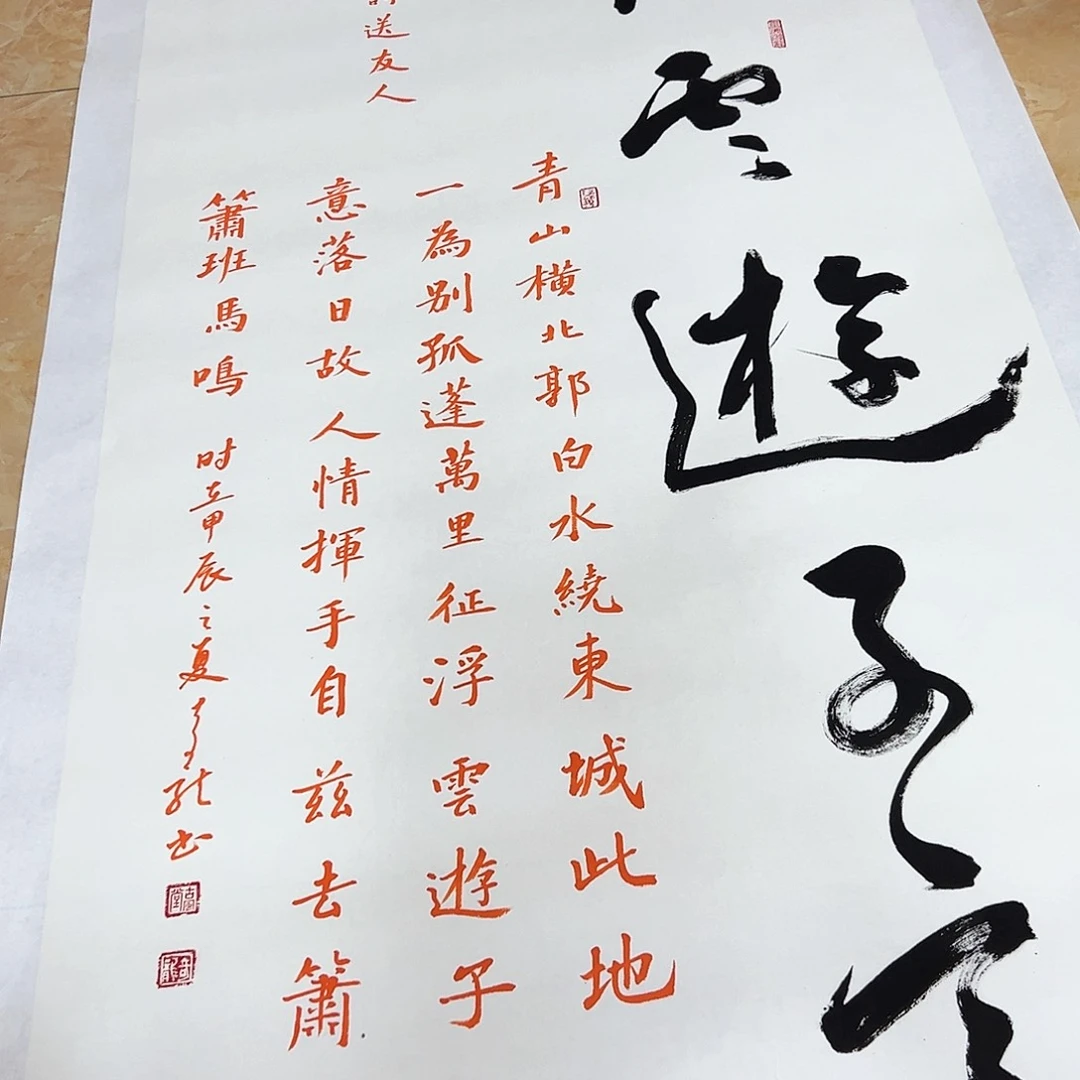 雲遊子
送友人
青山橫北郭白水繞東城此地
一為別孤蓬萬里征浮雲遊子
意落日故人情揮手自茲去簫
簫班馬鳴 时在甲辰之夏 书